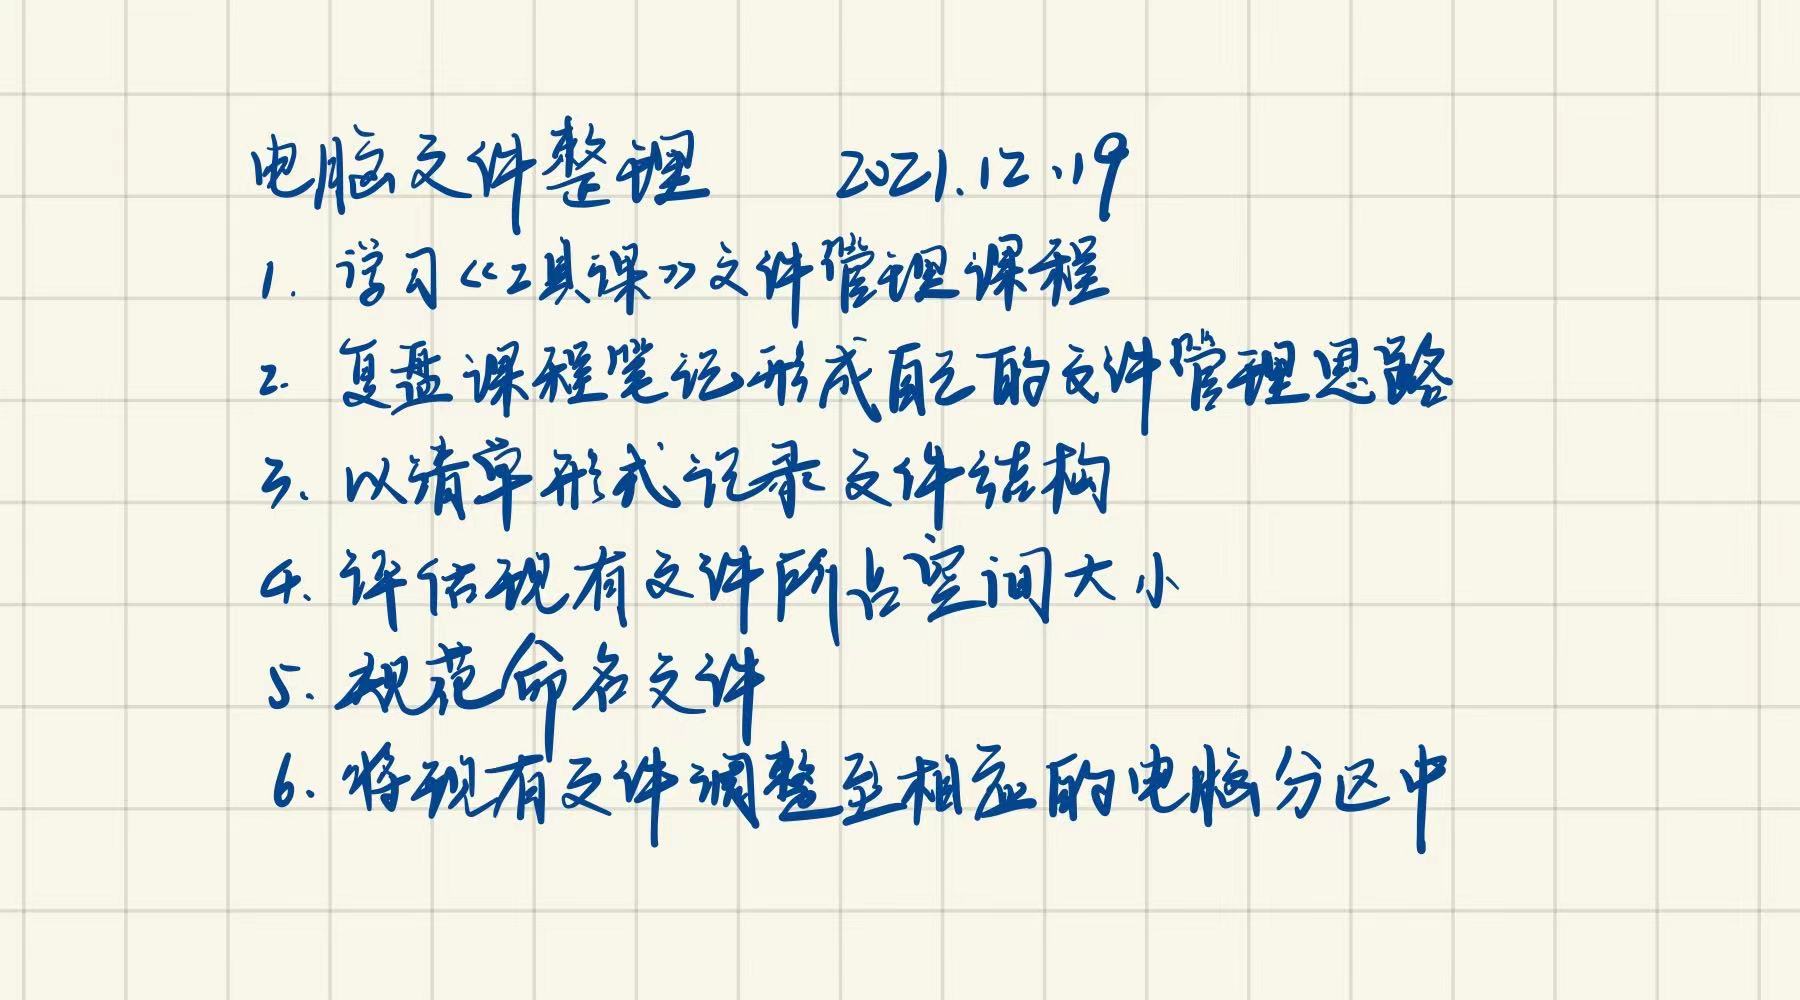 电脑文件整理 2021.12.19
1. 学习《工具课》文件管理课程
2. 复盘课程笔记形成自己的文件管理思路
3. 以清单形式记录文件结构
4. 评估现有文件所占空间大小
5. 规范命名文件
6. 将现有文件调整至相应的电脑分区中